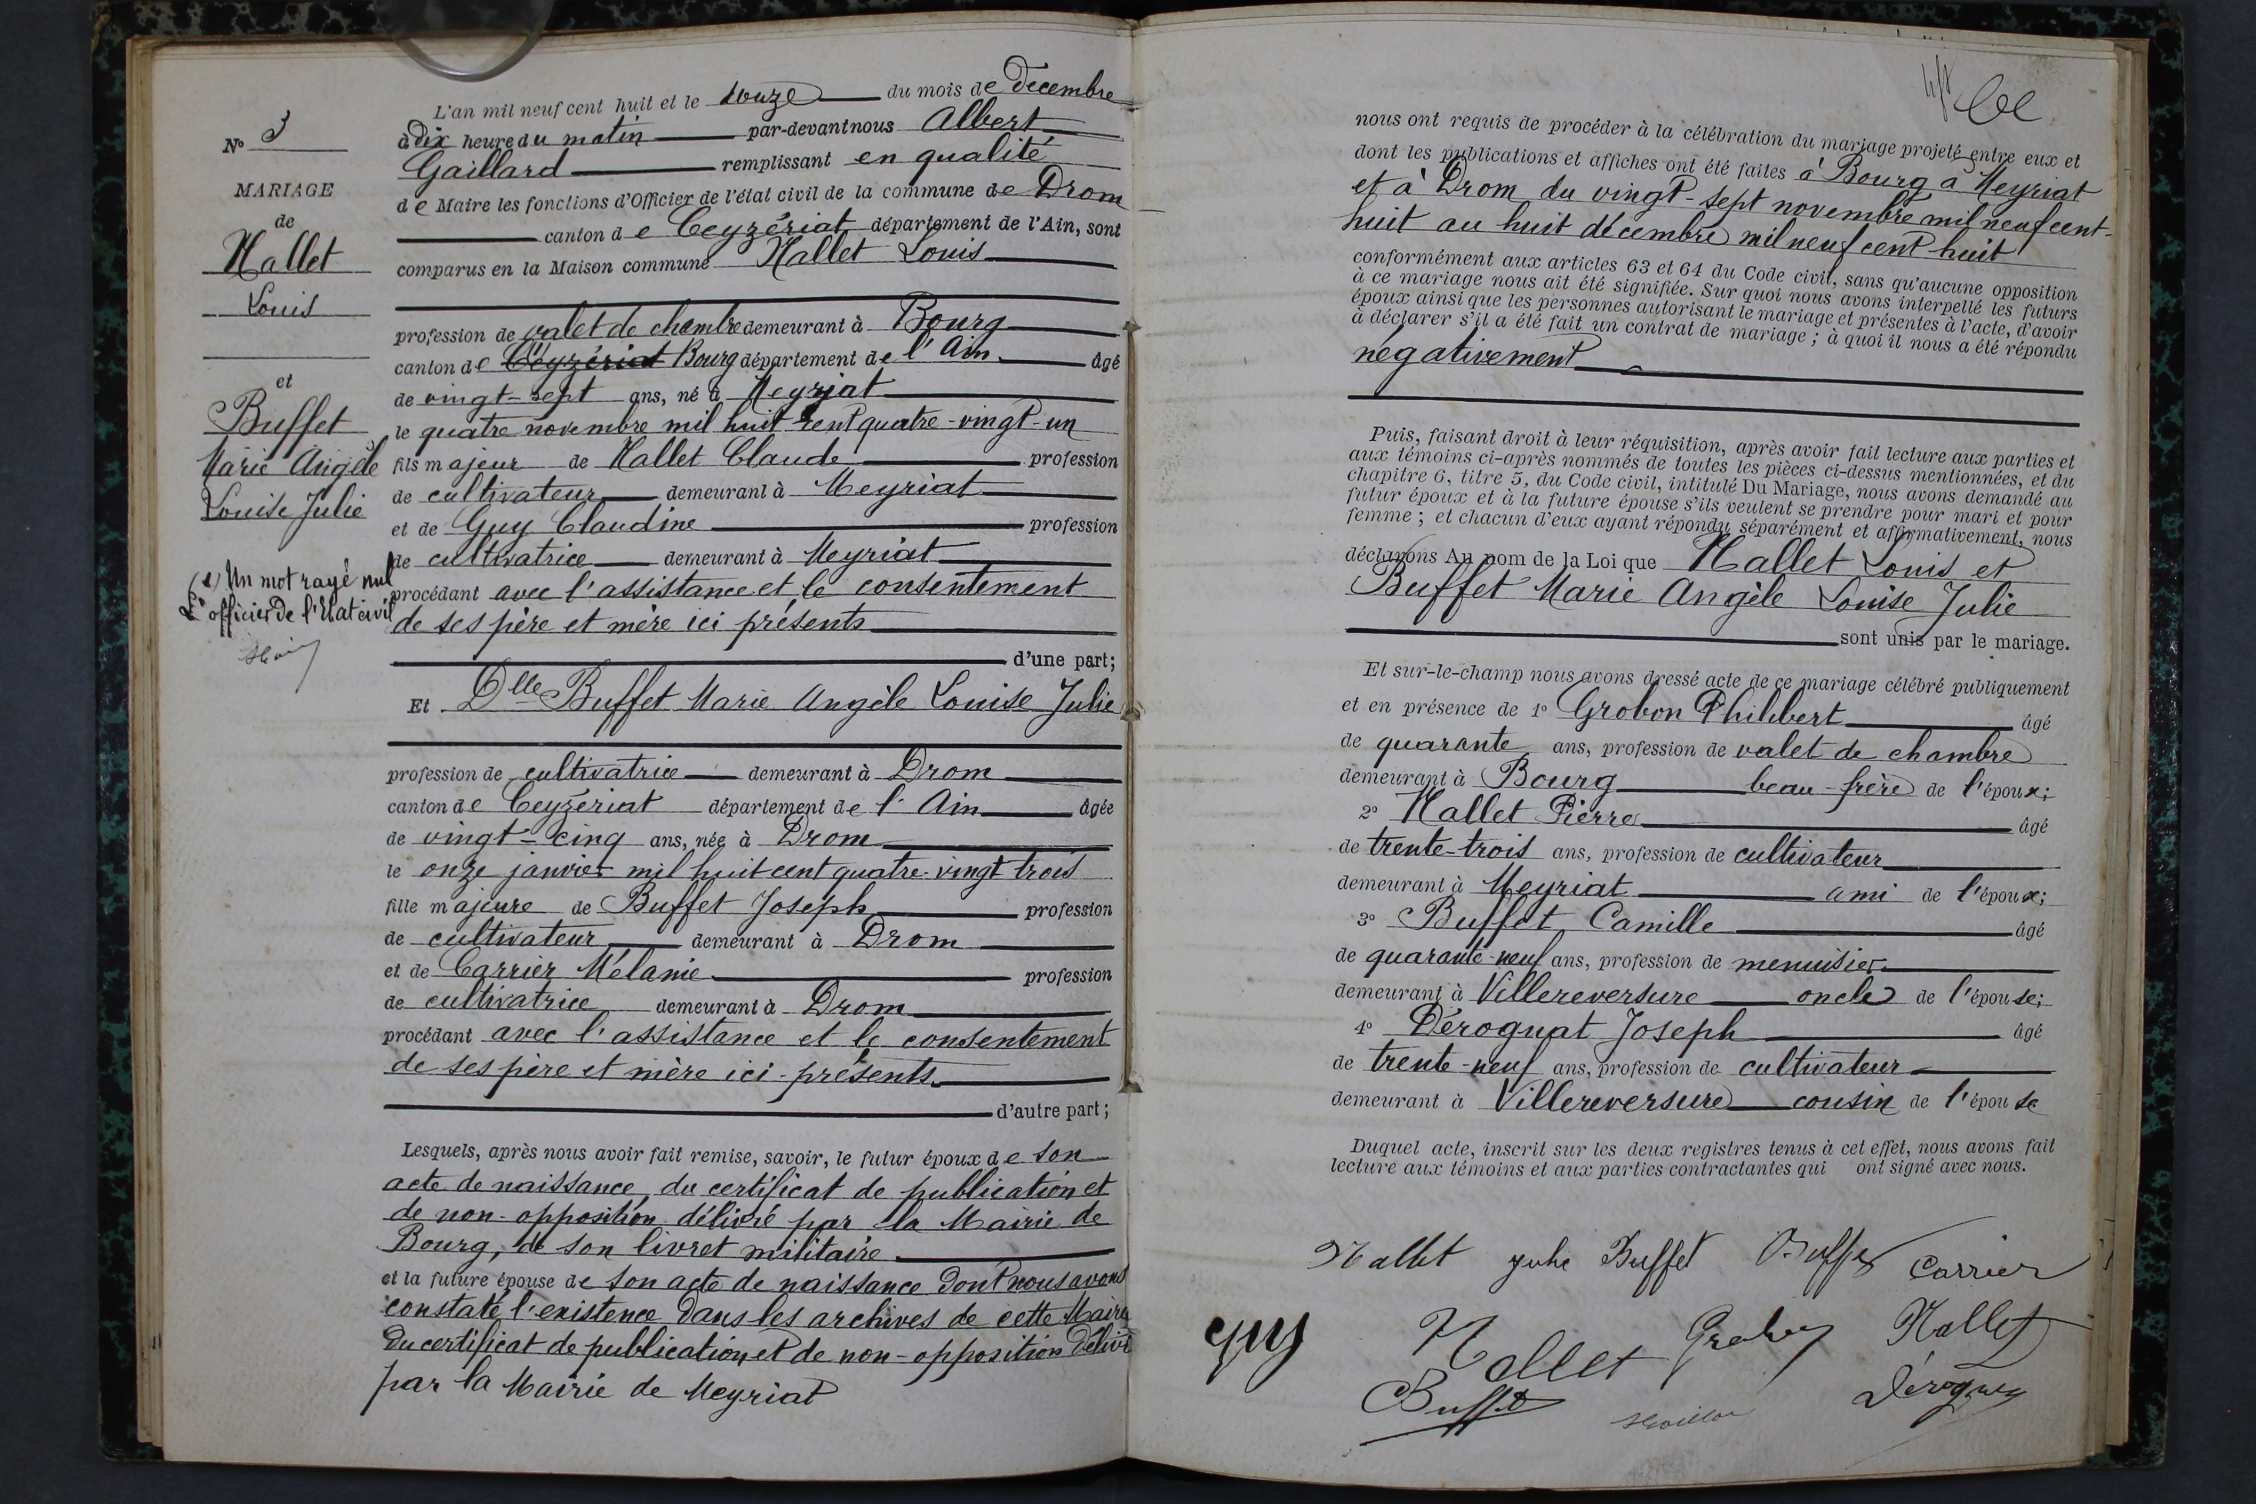 N° 3
MARIAGE
de
Hallet
Louis
et
Buffet
Marie Angèle
Louise Julie
(1) Un mot rayé nul
L'officier de l'Etat civil
L'an mil neuf cent huit et le douze du mois de décembre
à dix heure du matin par-devant nous Albert
Gaillard remplissant en qualité
de Maire les fonctions d'Officier de l'état civil de la commune de Drom
canton de Ceyzériat département de l'Ain, sont
comparus en la Maison commune Hallet Louis
profession de valet de chambre demeurant à Bourg
canton de Ceyzériat Bourg département de l'Ain âgé
de vingt-sept ans, né à Meyriat
le quatre novembre mil huit cent quatre-vingt-un
fils majeur de Hallet Claude profession
de cultivateur demeurant à Meyriat
et de Guy Claudine profession
de cultivatrice demeurant à Meyriat
procédant avec l'assistance et le consentement
de ses père et mère ici présents
d'une part;
Et Dlle Buffet Marie Angèle Louise Julie
profession de cultivatrice demeurant à Drom
canton de Ceyzériat département de l'Ain âgée
de vingt-cinq ans, née à Drom
le onze janvier mil huit cent quatre-vingt trois
fille majeure de Buffet Joseph profession
de cultivateur demeurant à Drom
et de Carrier Mélanie profession
de cultivatrice demeurant à Drom
procédant avec l'assistance et le consentement
de ses père et mère ici-présents
d'autre part;
Lesquels, après nous avoir fait remise, savoir, le futur époux de son
acte de naissance, du certificat de publication et
de non-opposition délivré par la Mairie de
Bourg, de son livret militaire
et la future épouse de son acte de naissance dont nous avons
constaté l'existence dans les archives de cette Mairie
du certificat de publication et de non-opposition délivré
par la Mairie de Meyriat
nous ont requis de procéder à la célébration du mariage projeté entre eux et
dont les publications et affiches ont été faites à Bourg à Meyriat
et à Drom du vingt-sept novembre mil neuf cent-
huit au huit décembre mil neuf cent huit
conformément aux articles 63 et 64 du Code civil, sans qu'aucune opposition
à ce mariage nous ait été signifiée. Sur quoi nous avons interpellé les futurs
époux ainsi que les personnes autorisant le mariage et présentes à l'acte, d'avoir
à déclarer s'il a été fait un contrat de mariage ; à quoi il nous a été répondu
négativement
Puis, faisant droit à leur réquisition, après avoir fait lecture aux parties et
aux témoins ci-après nommés de toutes les pièces ci-dessus mentionnées, et du
chapitre 6, titre 5, du Code civil, intitulé Du Mariage, nous avons demandé au
futur époux et à la future épouse s'ils veulent se prendre pour mari et pour
femme ; et chacun d'eux ayant répondu séparément et affirmativement, nous
déclarons Au nom de la Loi que Hallet Louis et
Buffet Marie Angèle Louise Julie
sont unis par le mariage.
Et sur-le-champ nous avons dressé acte de ce mariage célébré publiquement
et en présence de 1° Grobon Philibert âgé
de quarante ans, profession de valet de chambre
demeurant à Bourg beau-frère de l'époux;
2° Hallet Pierre âgé
de trente-trois ans, profession de cultivateur
demeurant à Meyriat ami de l'époux;
3° Buffet Camille âgé
de quarante-neuf ans, profession de menuisier
demeurant à Villereversure oncle de l'épouse;
4° Dérognat Joseph âgé
de trente-neuf ans, profession de cultivateur
demeurant à Villereversure cousin de l'épouse
Duquel acte, inscrit sur les deux registres tenus à cet effet, nous avons fait
lecture aux témoins et aux parties contractantes qui ont signé avec nous.
Hallet Julie Buffet Buffet Carrier
guy Hallet Hallet
Buffet